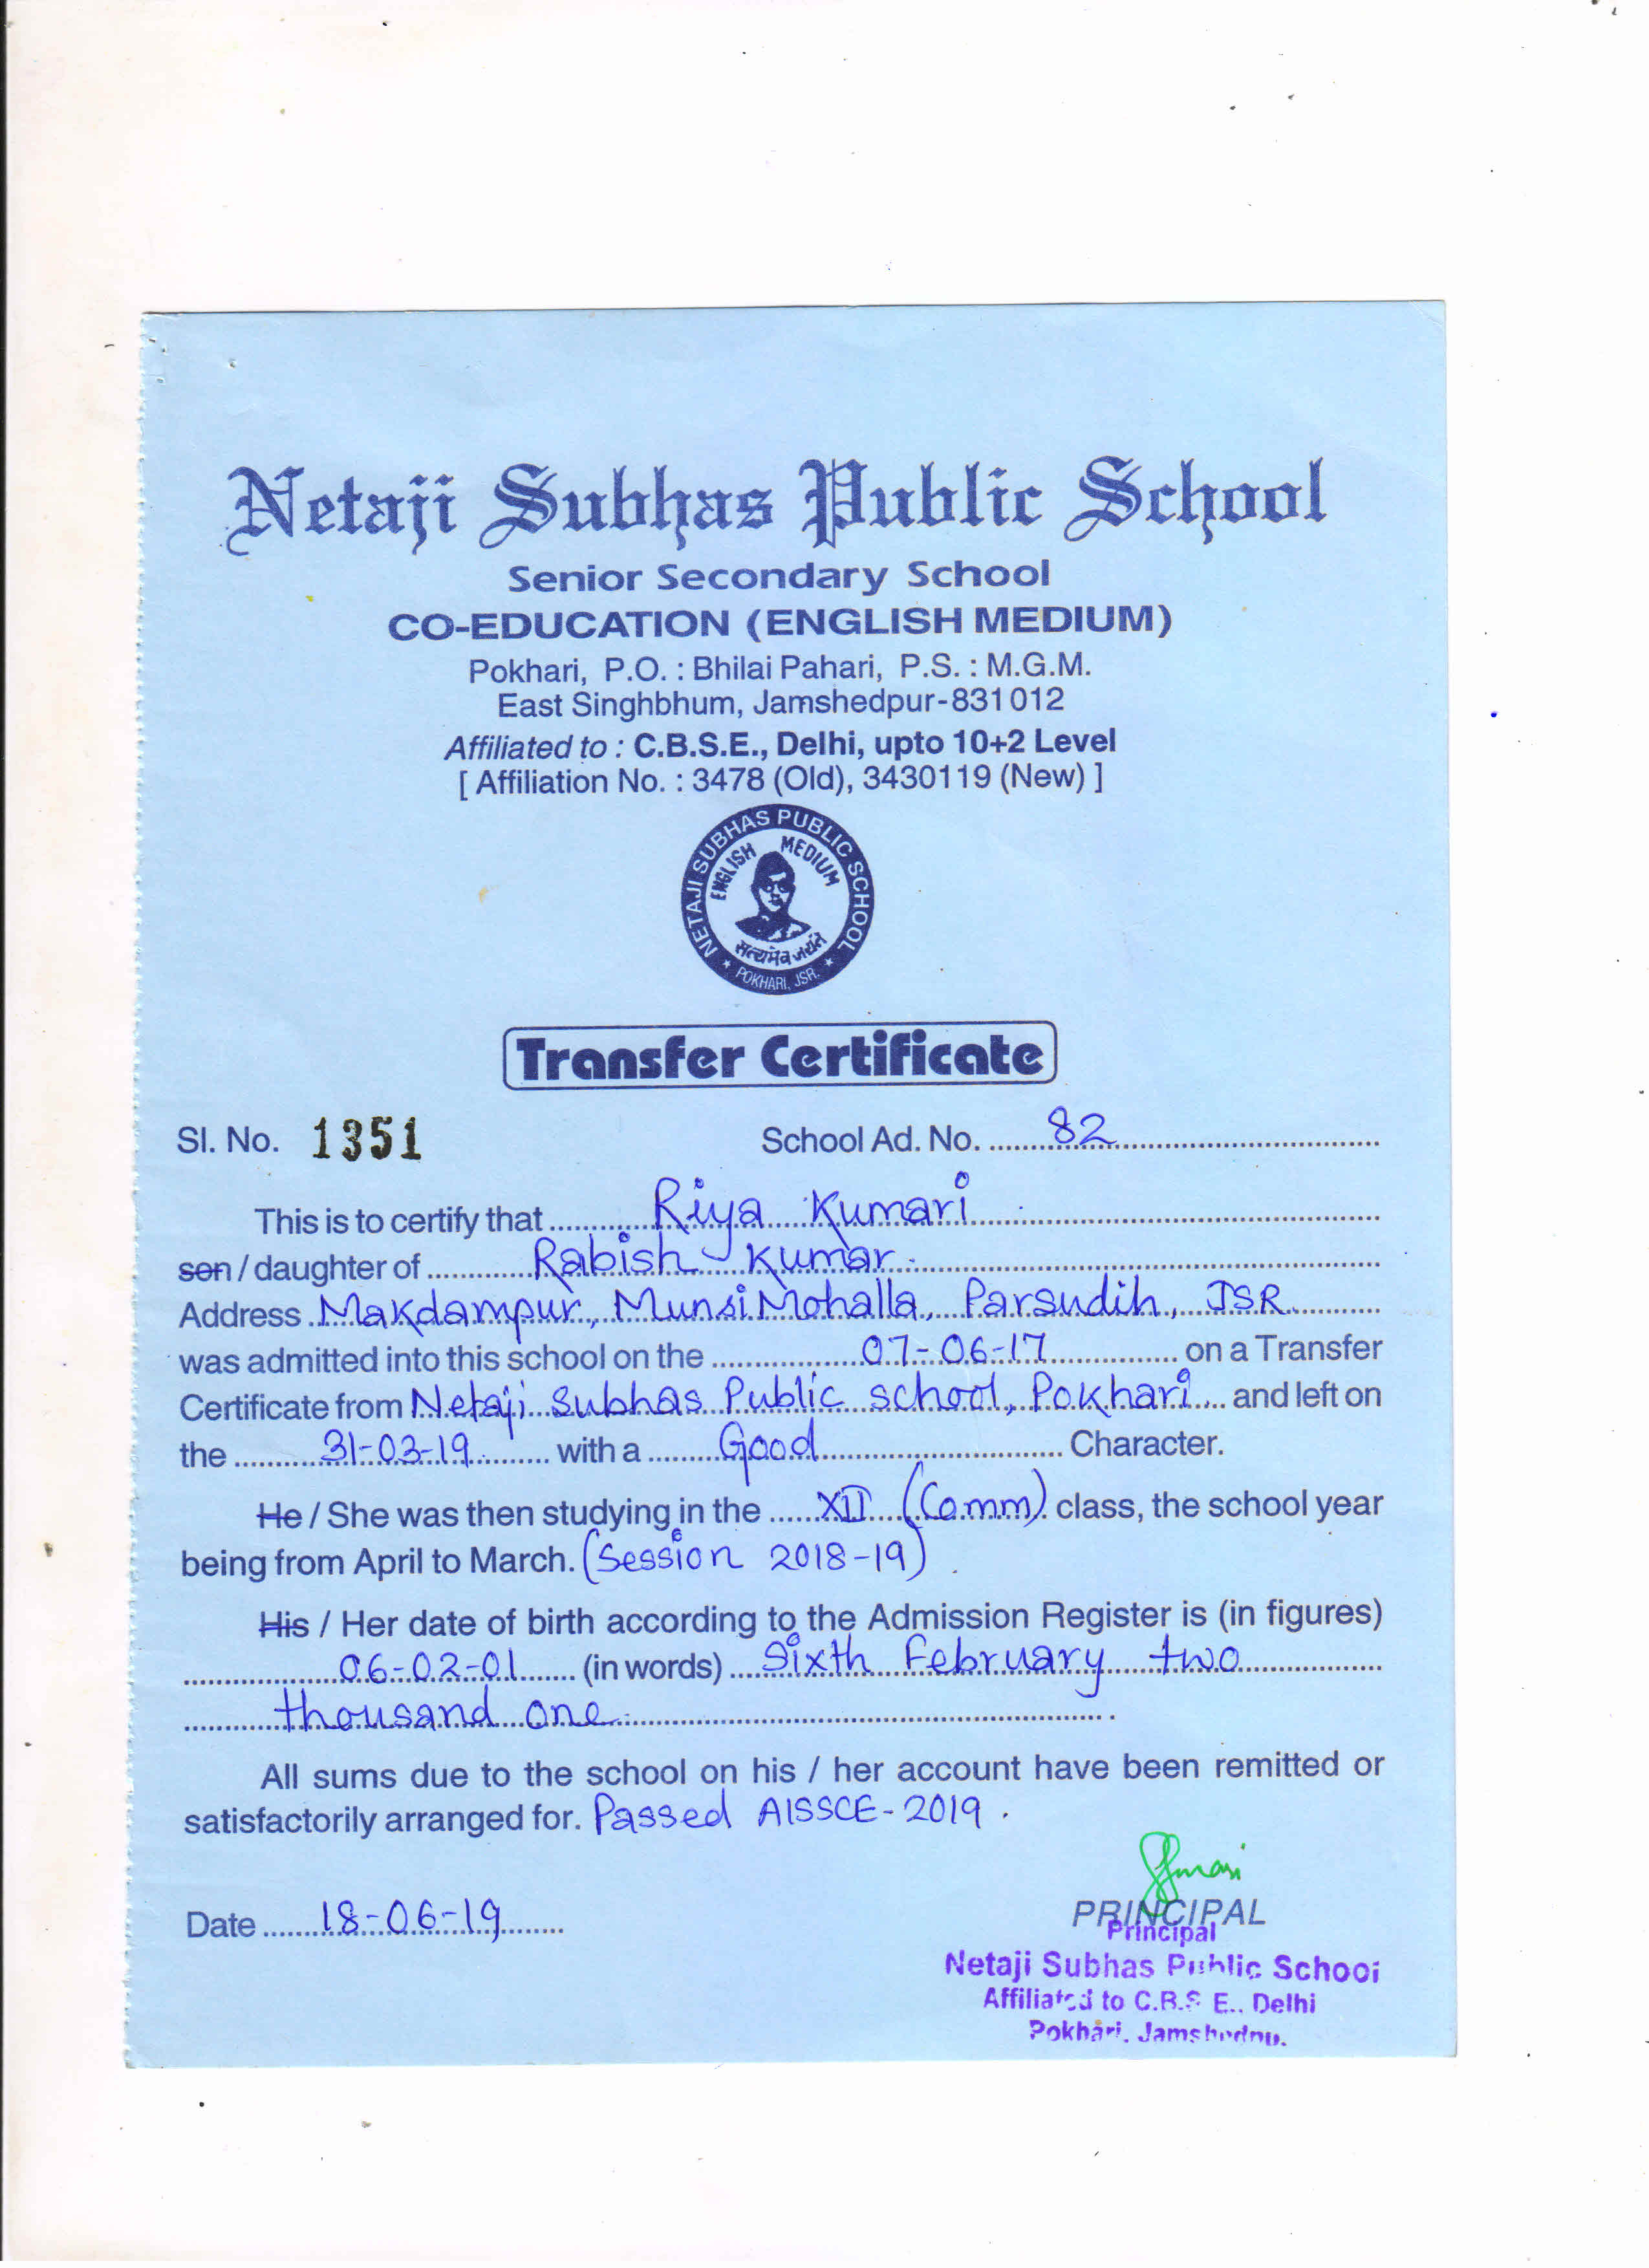 Netaji Subhas Public School
Senior Secondary School
CO-EDUCATION (ENGLISH MEDIUM)
Pokhari, P.O. : Bhilai Pahari, P.S. : M.G.M.
East Singhbhum, Jamshedpur-831012
Affiliated to : C.B.S.E., Delhi, upto 10+2 Level
[ Affiliation No. : 3478 (Old), 3430119 (New) ]
NETAJI SUBHAS PUBLIC SCHOOL
ENGLISH MEDIUM
सत्यमेव जयते
* POKHARI, JSR. *
Transfer Certificate
Sl. No. 1351 School Ad. No. 82
This is to certify that Riya Kumari
son / daughter of Rabish Kumar
Address Makdampur, Munsi Mohalla, Parsudih, JSR
was admitted into this school on the 07-06-17 on a Transfer
Certificate from Netaji Subhas Public school, Pokhari and left on
the 31-03-19 with a Good Character.
He / She was then studying in the XII (Comm) class, the school year
being from April to March. (Session 2018-19)
His / Her date of birth according to the Admission Register is (in figures)
06-02-01 (in words) Sixth February two
thousand one
All sums due to the school on his / her account have been remitted or
satisfactorily arranged for. Passed AISSCE-2019.
Date 18-06-19
PRINCIPAL
Principal
Netaji Subhas Public School
Affiliated to C.B.S.E., Delhi
Pokhari,